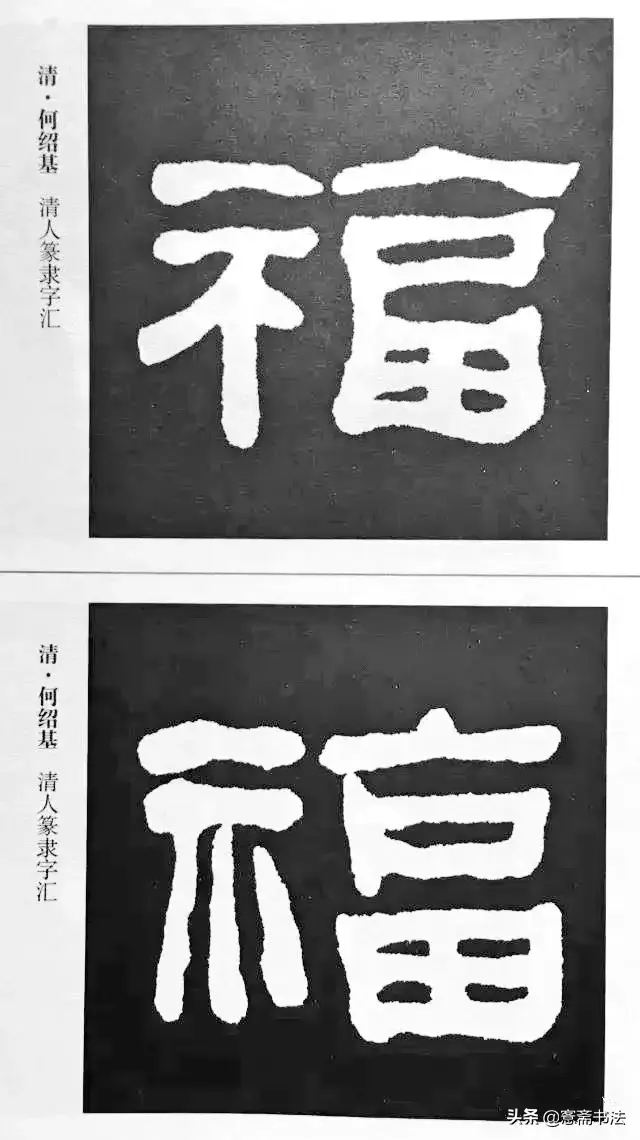 清·何绍基 清人篆隶字汇
福
清·何绍基 清人篆隶字汇
福
头条 @蹇斋书法